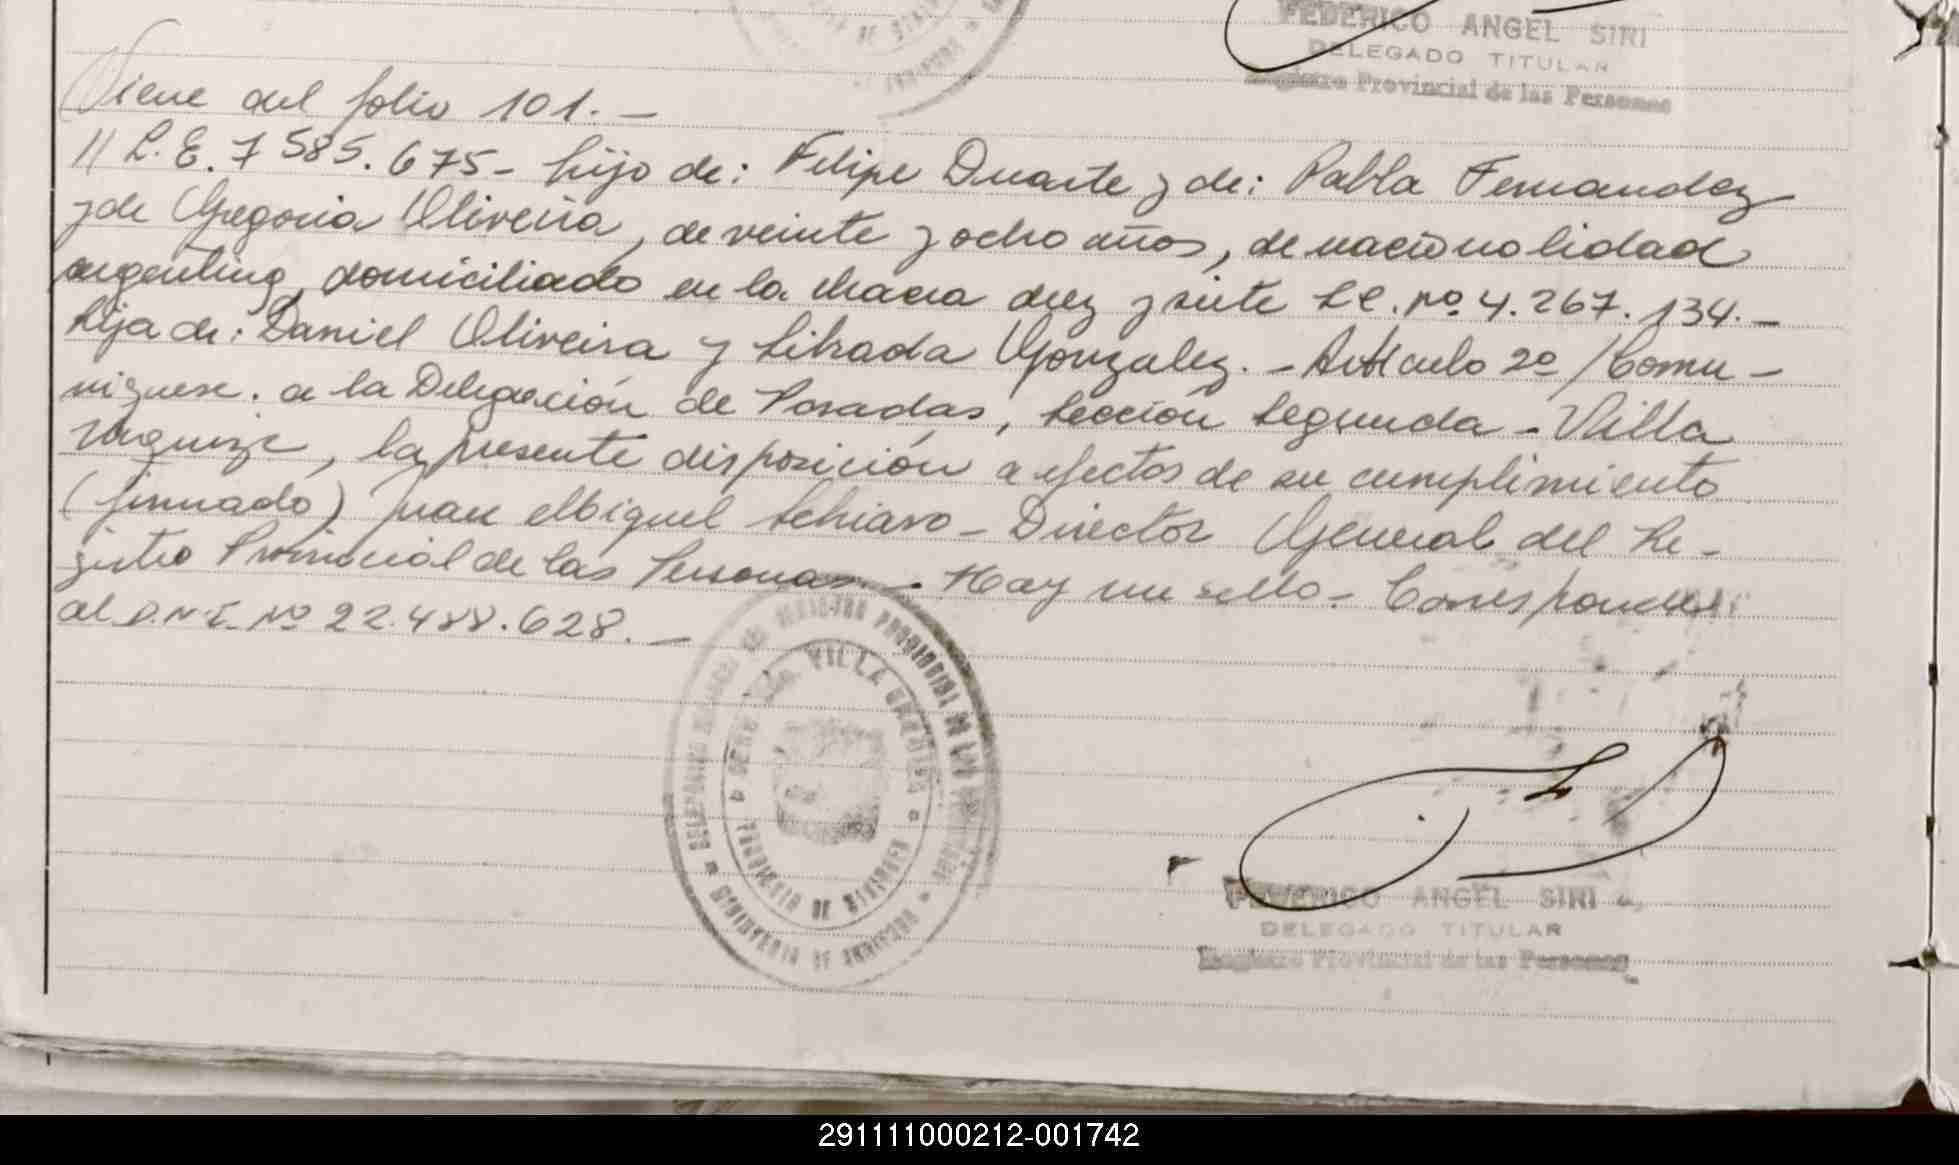 FEDERICO ANGEL SIRI
DELEGADO TITULAR
Registro Provincial de las Personas
Viene del folio 101. —
// L.E. 7585.675 - hijo de: Felipe Duarte y de: Pabla Fernandez
y de Gregoria Oliveira, de veinte y ocho años, de nacionalidad
argentina, domiciliado en la chacra diez y siete L.C. nº 4.267.134. —
hija de: Daniel Oliveira y Librada Gonzalez. - Artículo 2º / Comu -
niquese. a la Delegación de Posadas, Sección Segunda - Villa
Urquiza, la presente disposición a efectos de su cumplimiento
(firmado) Juan Miguel Schiavo - Director General del Re -
gistro Provincial de las Personas. Hay un sello - Corresponde
al D.N.I. Nº 22.488.628. —
VILLA URQUIZA
PROVINCIA DE MISIONES
FEDERICO ANGEL SIRI
DELEGADO TITULAR
Registro Provincial de las Personas
291111000212-001742